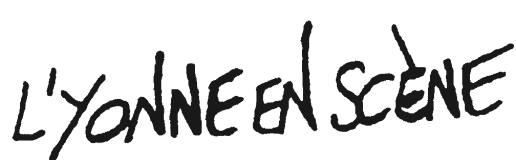 L'YONNE EN SCÈNE